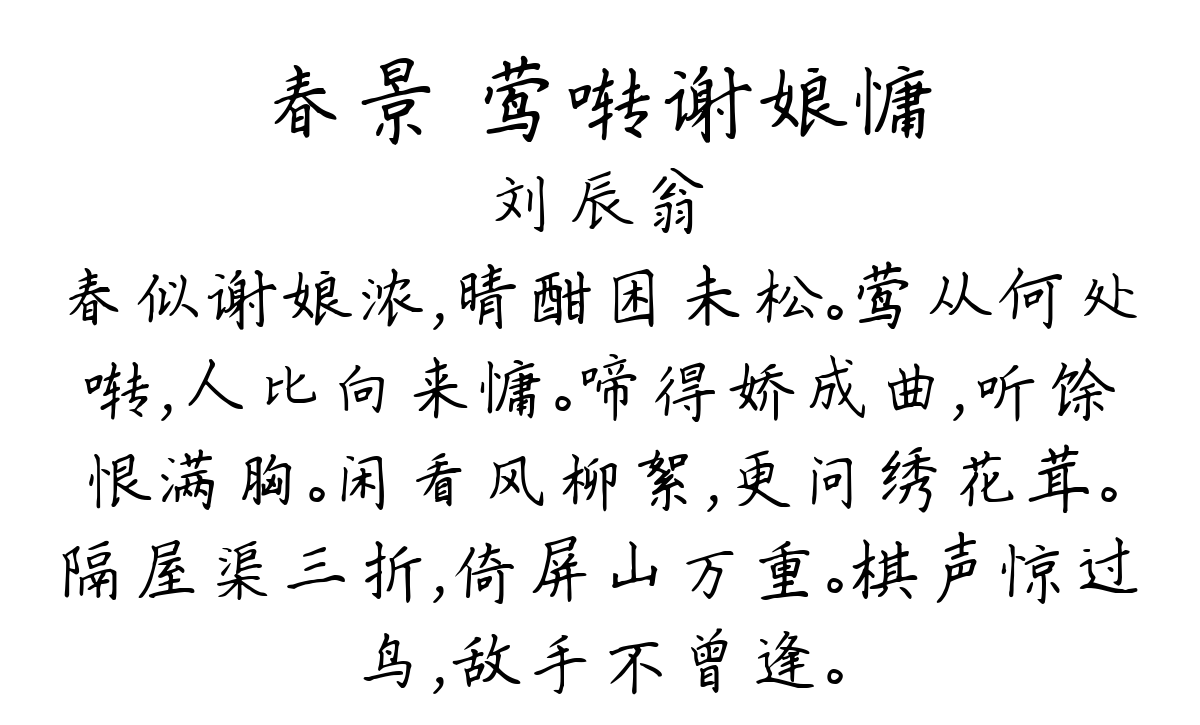 春景 莺啭谢娘慵
刘辰翁
春似谢娘浓,晴酣困未松。莺从何处
啭,人比向来慵。啼得娇成曲,听馀
恨满胸。闲看风柳絮,更问绣花茸。
隔屋渠三折,倚屏山万重。棋声惊过
鸟,敌手不曾逢。